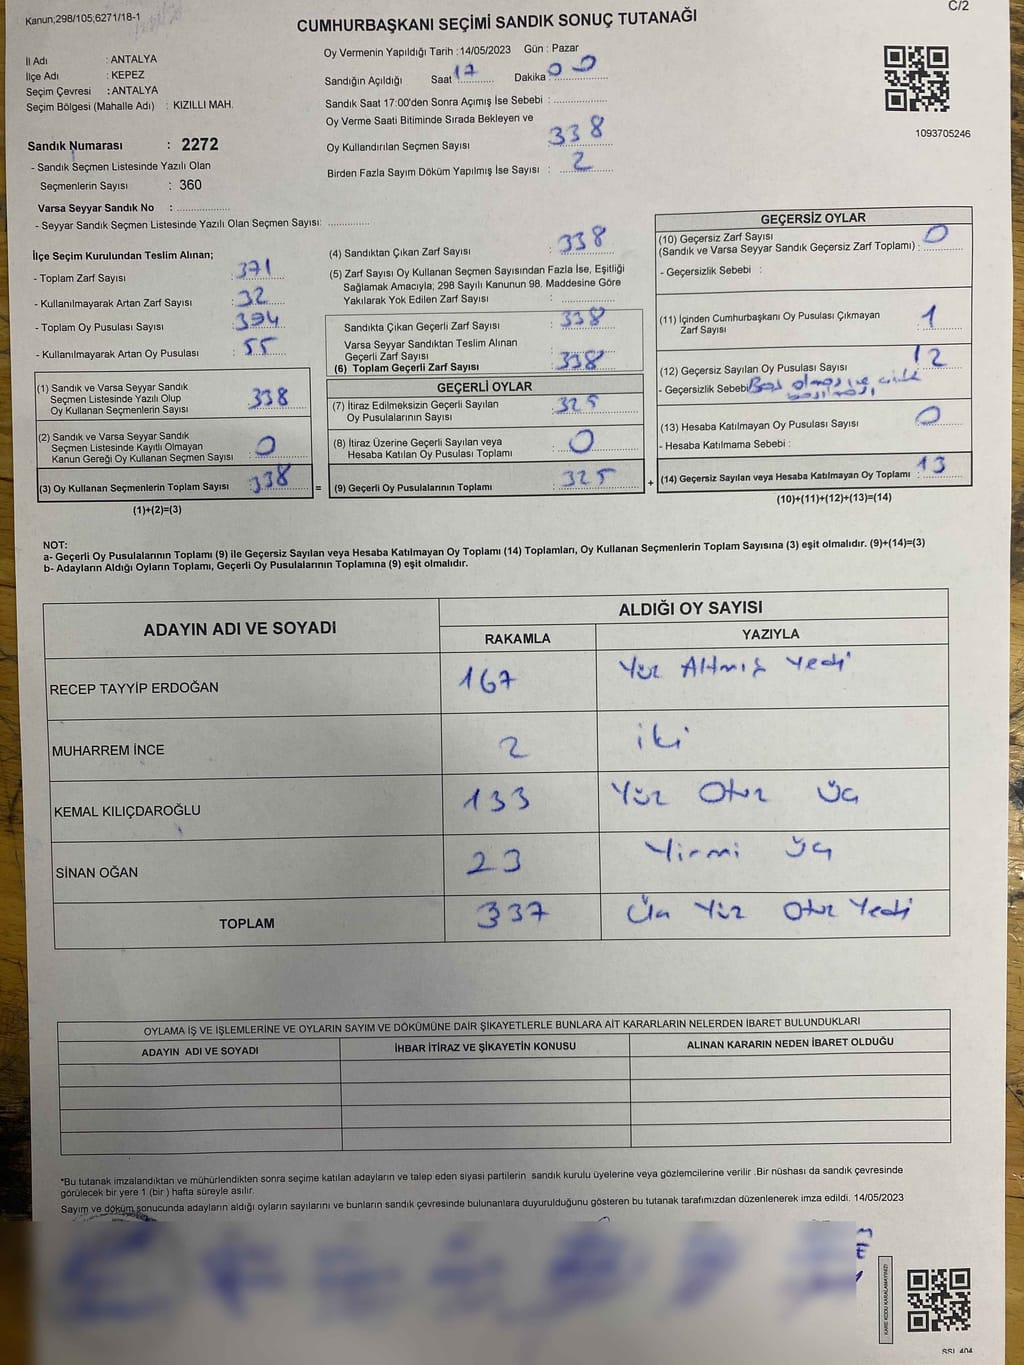 Kanun;298/105;6271/18-1
C/2
CUMHURBAŞKANI SEÇİMİ SANDIK SONUÇ TUTANAĞI
İl Adı : ANTALYA
İlçe Adı : KEPEZ
Seçim Çevresi : ANTALYA
Seçim Bölgesi (Mahalle Adı) : KIZILLI MAH.
Sandık Numarası : 2272
- Sandık Seçmen Listesinde Yazılı Olan
Seçmenlerin Sayısı : 360
Varsa Seyyar Sandık No : ..............
- Seyyar Sandık Seçmen Listesinde Yazılı Olan Seçmen Sayısı: ............
Oy Vermenin Yapıldığı Tarih :14/05/2023 Gün : Pazar
Sandığın Açıldığı Saat 17 Dakika 00
Sandık Saat 17:00'den Sonra Açımış İse Sebebi : ..............
Oy Verme Saati Bitiminde Sırada Bekleyen ve
Oy Kullandırılan Seçmen Sayısı 338
Birden Fazla Sayım Döküm Yapılmış İse Sayısı : 2
1093705246
İlçe Seçim Kurulundan Teslim Alınan;
- Toplam Zarf Sayısı : 371
- Kullanılmayarak Artan Zarf Sayısı : 32
- Toplam Oy Pusulası Sayısı : 394
- Kullanılmayarak Artan Oy Pusulası : 55
(1) Sandık ve Varsa Seyyar Sandık
Seçmen Listesinde Yazılı Olup
Oy Kullanan Seçmenlerin Sayısı : 338
(2) Sandık ve Varsa Seyyar Sandık
Seçmen Listesinde Kayıtlı Olmayan
Kanun Gereği Oy Kullanan Seçmen Sayısı : 0
(3) Oy Kullanan Seçmenlerin Toplam Sayısı : 338
(1)+(2)=(3)
=
(4) Sandıktan Çıkan Zarf Sayısı : 338
(5) Zarf Sayısı Oy Kullanan Seçmen Sayısından Fazla İse, Eşitliği
Sağlamak Amacıyla; 298 Sayılı Kanunun 98. Maddesine Göre
Yakılarak Yok Edilen Zarf Sayısı : ..............
Sandıkta Çıkan Geçerli Zarf Sayısı : 338
Varsa Seyyar Sandıktan Teslim Alınan
Geçerli Zarf Sayısı
(6) Toplam Geçerli Zarf Sayısı : 338
GEÇERLİ OYLAR
(7) İtiraz Edilmeksizin Geçerli Sayılan
Oy Pusulalarının Sayısı : 325
(8) İtiraz Üzerine Geçerli Sayılan veya
Hesaba Katılan Oy Pusulası Toplamı : 0
(9) Geçerli Oy Pusulalarının Toplamı : 325
+
GEÇERSİZ OYLAR
(10) Geçersiz Zarf Sayısı
(Sandık ve Varsa Seyyar Sandık Geçersiz Zarf Toplamı) : 0
- Geçersizlik Sebebi :
(11) İçinden Cumhurbaşkanı Oy Pusulası Çıkmayan
Zarf Sayısı : 1
(12) Geçersiz Sayılan Oy Pusulası Sayısı : 12
- Geçersizlik Sebebi Boş olması ve
(13) Hesaba Katılmayan Oy Pusulası Sayısı : 0
- Hesaba Katılmama Sebebi :
(14) Geçersiz Sayılan veya Hesaba Katılmayan Oy Toplamı : 13
(10)+(11)+(12)+(13)=(14)
NOT:
a- Geçerli Oy Pusulalarının Toplamı (9) ile Geçersiz Sayılan veya Hesaba Katılmayan Oy Toplamı (14) Toplamları, Oy Kullanan Seçmenlerin Toplam Sayısına (3) eşit olmalıdır. (9)+(14)=(3)
b- Adayların Aldığı Oyların Toplamı, Geçerli Oy Pusulalarının Toplamına (9) eşit olmalıdır.
ADAYIN ADI VE SOYADI
ALDIĞI OY SAYISI
RAKAMLA YAZIYLA
RECEP TAYYİP ERDOĞAN 167 Yüz Altmış Yedi
MUHARREM İNCE 2 iki
KEMAL KILIÇDAROĞLU 133 Yüz Otuz Üç
SİNAN OĞAN 23 Yirmi Üç
TOPLAM 337 Üç Yüz Otuz Yedi
OYLAMA İŞ VE İŞLEMLERİNE VE OYLARIN SAYIM VE DÖKÜMÜNE DAİR ŞİKAYETLERLE BUNLARA AİT KARARLARIN NELERDEN İBARET BULUNDUKLARI
ADAYIN ADI VE SOYADI İHBAR İTİRAZ VE ŞİKAYETİN KONUSU ALINAN KARARIN NEDEN İBARET OLDUĞU
*Bu tutanak imzalandıktan ve mühürlendikten sonra seçime katılan adayların ve talep eden siyasi partilerin sandık kurulu üyelerine veya gözlemcilerine verilir .Bir nüshası da sandık çevresinde
görülecek bir yere 1 (bir ) hafta süreyle asılır.
Sayım ve döküm sonucunda adayların aldığı oyların sayılarını ve bunların sandık çevresinde bulunanlara duyurulduğunu gösteren bu tutanak tarafımızdan düzenlenerek imza edildi. 14/05/2023
KARE KODU KARALAMAYINIZ!